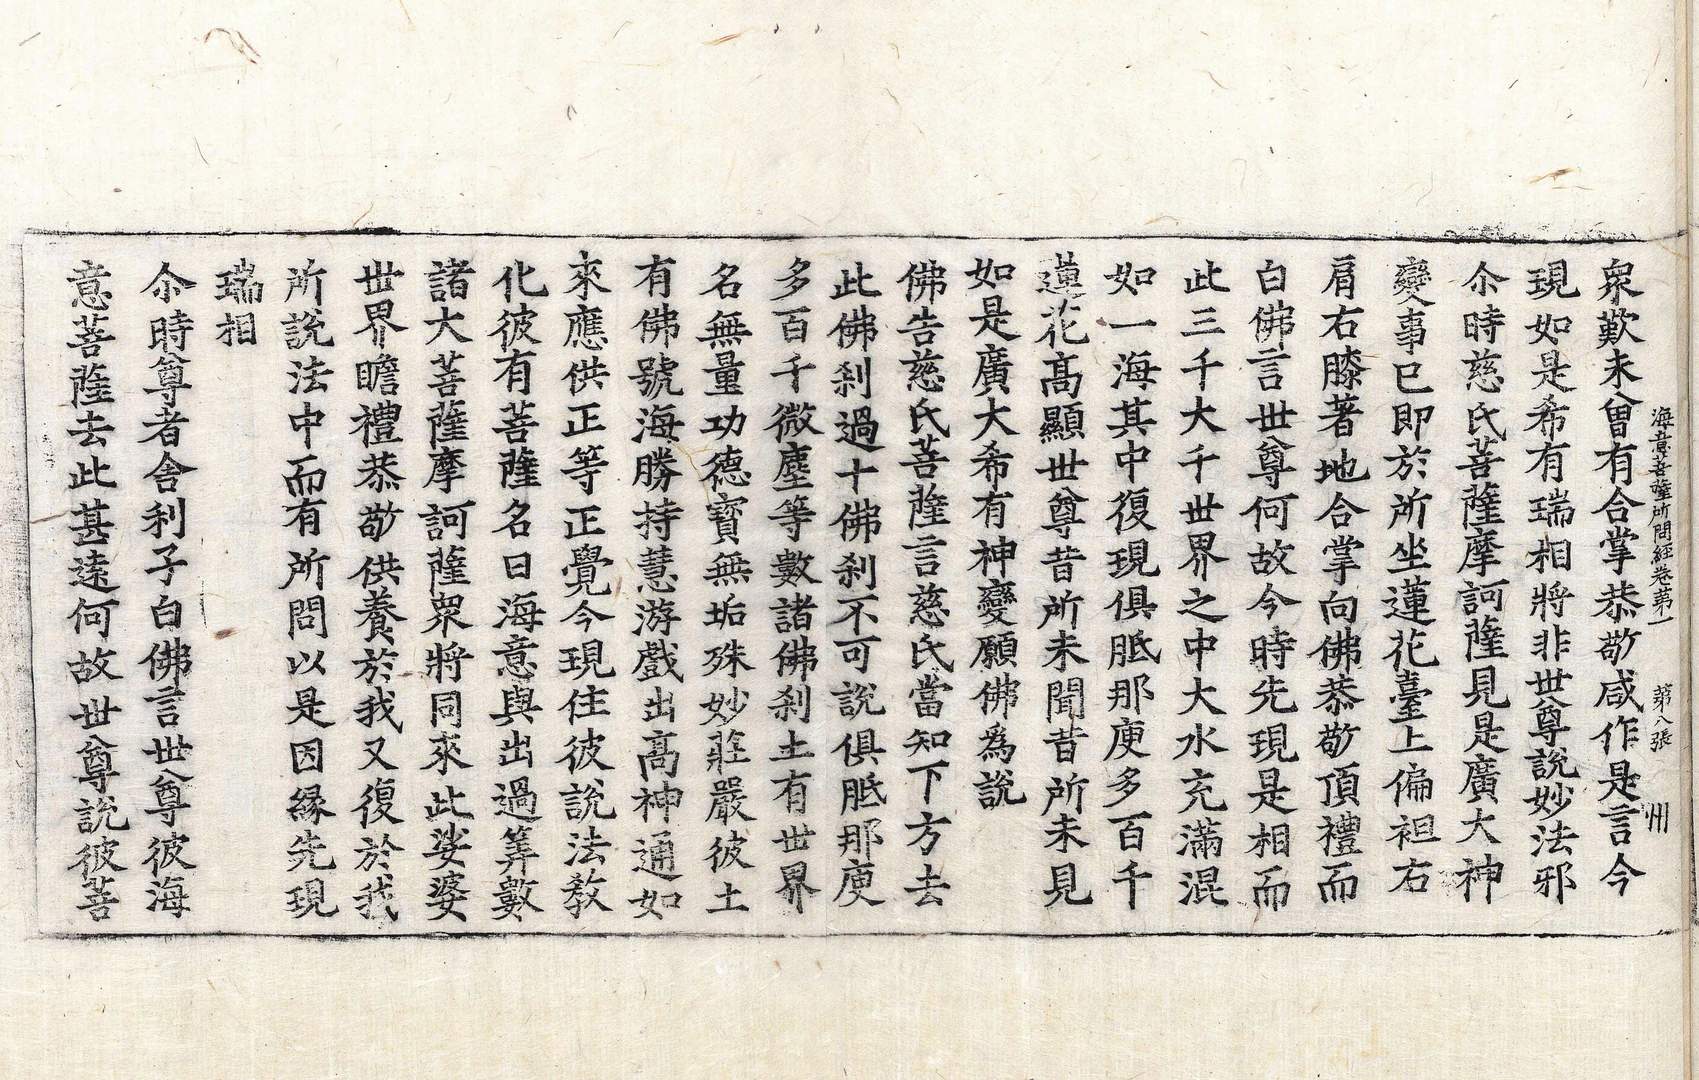 海意菩薩所問經卷第一 第八張 州
衆歎未曾有合掌恭敬咸作是言今
現如是希有瑞相將非世尊說妙法邪
尒時慈氏菩薩摩訶薩見是廣大神
變事已即於所坐蓮花臺上偏袒右
肩右膝著地合掌向佛恭敬頂禮而
白佛言世尊何故今時先現是相而
此三千大千世界之中大水充滿混
如一海其中復現俱胝那庾多百千
蓮花高顯世尊昔所未聞昔所未見
如是廣大希有神變願佛爲說
佛告慈氏菩薩言慈氏當知下方去
此佛刹過十佛刹不可說俱胝那庾
多百千微塵等數諸佛刹土有世界
名無量功德寶無垢殊妙莊嚴彼土
有佛號海勝持慧游戲出高神通如
來應供正等正覺今現住彼說法教
化彼有菩薩名曰海意與出過筭數
諸大菩薩摩訶薩衆將同來此娑婆
世界瞻禮恭敬供養於我又復於我
所說法中而有所問以是因緣先現
瑞相
尒時尊者舍利子白佛言世尊彼海
意菩薩去此甚遠何故世尊說彼菩